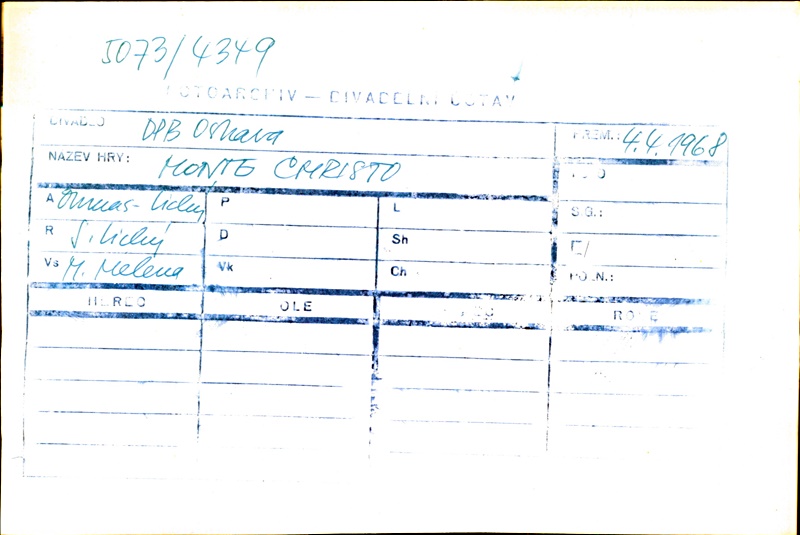 5073/4349
FOTOARCHIV — DIVADELNÍ ÚSTAV
DIVADLO DPB Ostrava PREM.: 4.4.1968
NÁZEV HRY: MONTE CHRISTO FOTO
A Dumas - Lichý P L S.G.:
R S. Lichý D Sh
Vs M. Melena Vk Ch POZN.:
HEREC ROLE ROLE